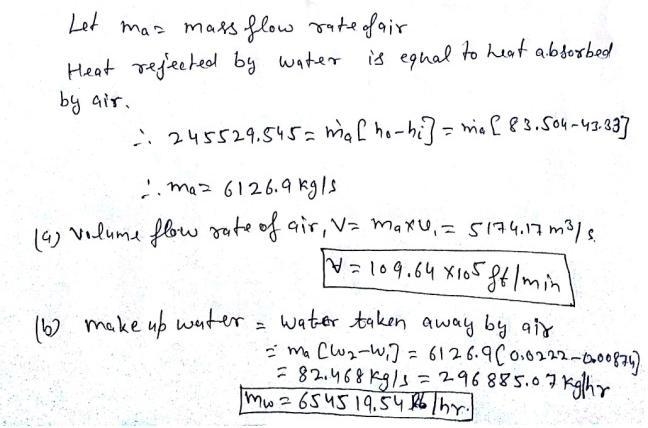 Let ma = mass flow rate of air
Heat rejected by water is equal to heat absorbed
by air.
∴ 245529.545 = ṁa[ho-hi] = ṁa[83.504-43.33]
∴ ma = 6126.9 kg/s
(a) volume flow rate of air, V = ma×υ₁ = 5174.17 m³/s
V = 109.64 ×10⁵ ft/min
(b) make up water = water taken away by air
= ma [w₂-w₁] = 6126.9(0.0222-0.00874)
= 82.468 kg/s = 296885.07 kg/hr
mw = 654519.54 lb/hr.